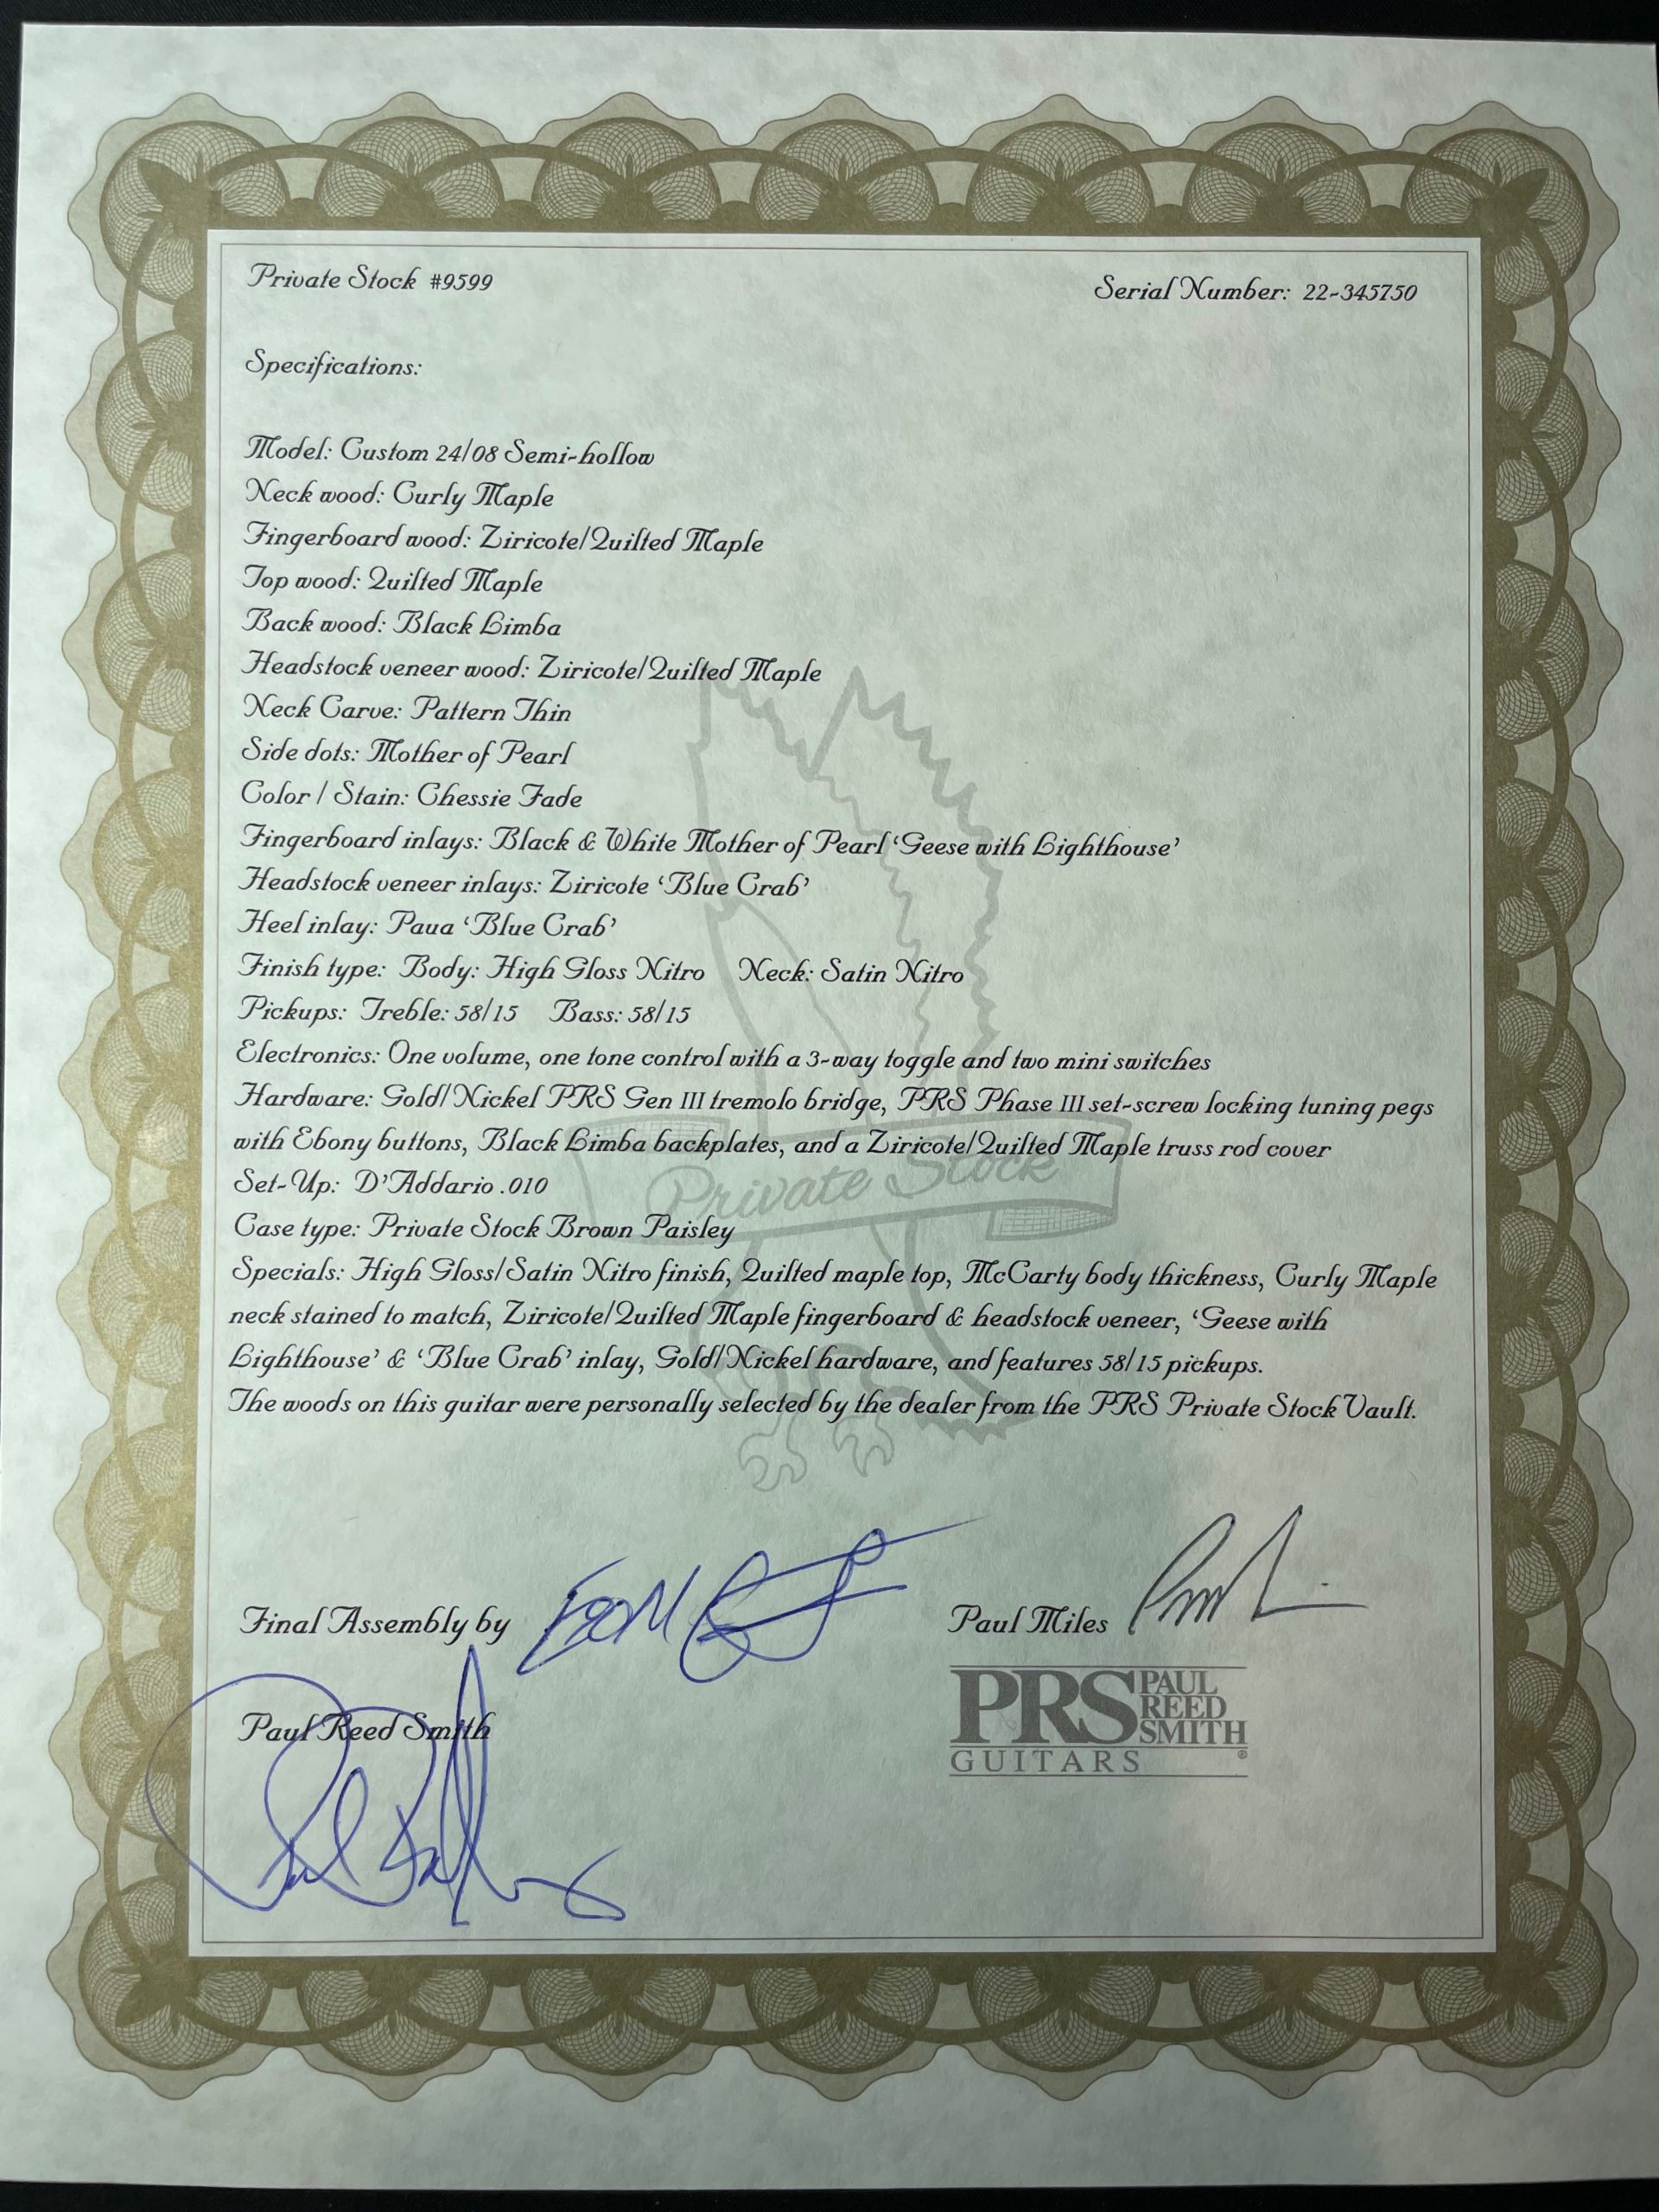 Private Stock #9599
Serial Number: 22-345750
Specifications:
Model: Custom 24/08 Semi-hollow
Neck wood: Curly Maple
Fingerboard wood: Ziricote/Quilted Maple
Top wood: Quilted Maple
Back wood: Black Limba
Headstock veneer wood: Ziricote/Quilted Maple
Neck Carve: Pattern Thin
Side dots: Mother of Pearl
Color / Stain: Chessie Fade
Fingerboard inlays: Black & White Mother of Pearl ‘Geese with Lighthouse’
Headstock veneer inlays: Ziricote ‘Blue Crab’
Heel inlay: Paua ‘Blue Crab’
Finish type: Body: High Gloss Nitro Neck: Satin Nitro
Pickups: Treble: 58/15 Bass: 58/15
Electronics: One volume, one tone control with a 3-way toggle and two mini switches
Hardware: Gold/Nickel PRS Gen III tremolo bridge, PRS Phase III set-screw locking tuning pegs
with Ebony buttons, Black Limba backplates, and a Ziricote/Quilted Maple truss rod cover
Private Stock
Set-Up: D’Addario .010
Case type: Private Stock Brown Paisley
Specials: High Gloss/Satin Nitro finish, Quilted maple top, McCarty body thickness, Curly Maple
neck stained to match, Ziricote/Quilted Maple fingerboard & headstock veneer, ‘Geese with
Lighthouse’ & ‘Blue Crab’ inlay, Gold/Nickel hardware, and features 58/15 pickups.
The woods on this guitar were personally selected by the dealer from the PRS Private Stock Vault.
Final Assembly by
Paul Miles
Paul Reed Smith
PRS PAUL REED SMITH
GUITARS ®